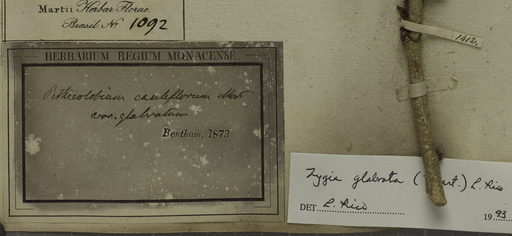 Martii Herbar. Florae
Brasil. No. 1092
1412.
HERBARIUM REGIUM MONACENSE.
Pithecolobium cauliflorum Mart
var. glabratum
Bentham. 1873
Zygia glabrata (Mart.) L. Rico
DET. L. Rico
19 93